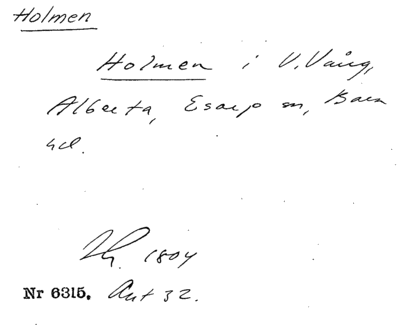 Holmen
Holmen i V. Vång,
Alberta, Esarp sn, Bara
hd.
Th. 1804
Nr 6315. Ant 32.